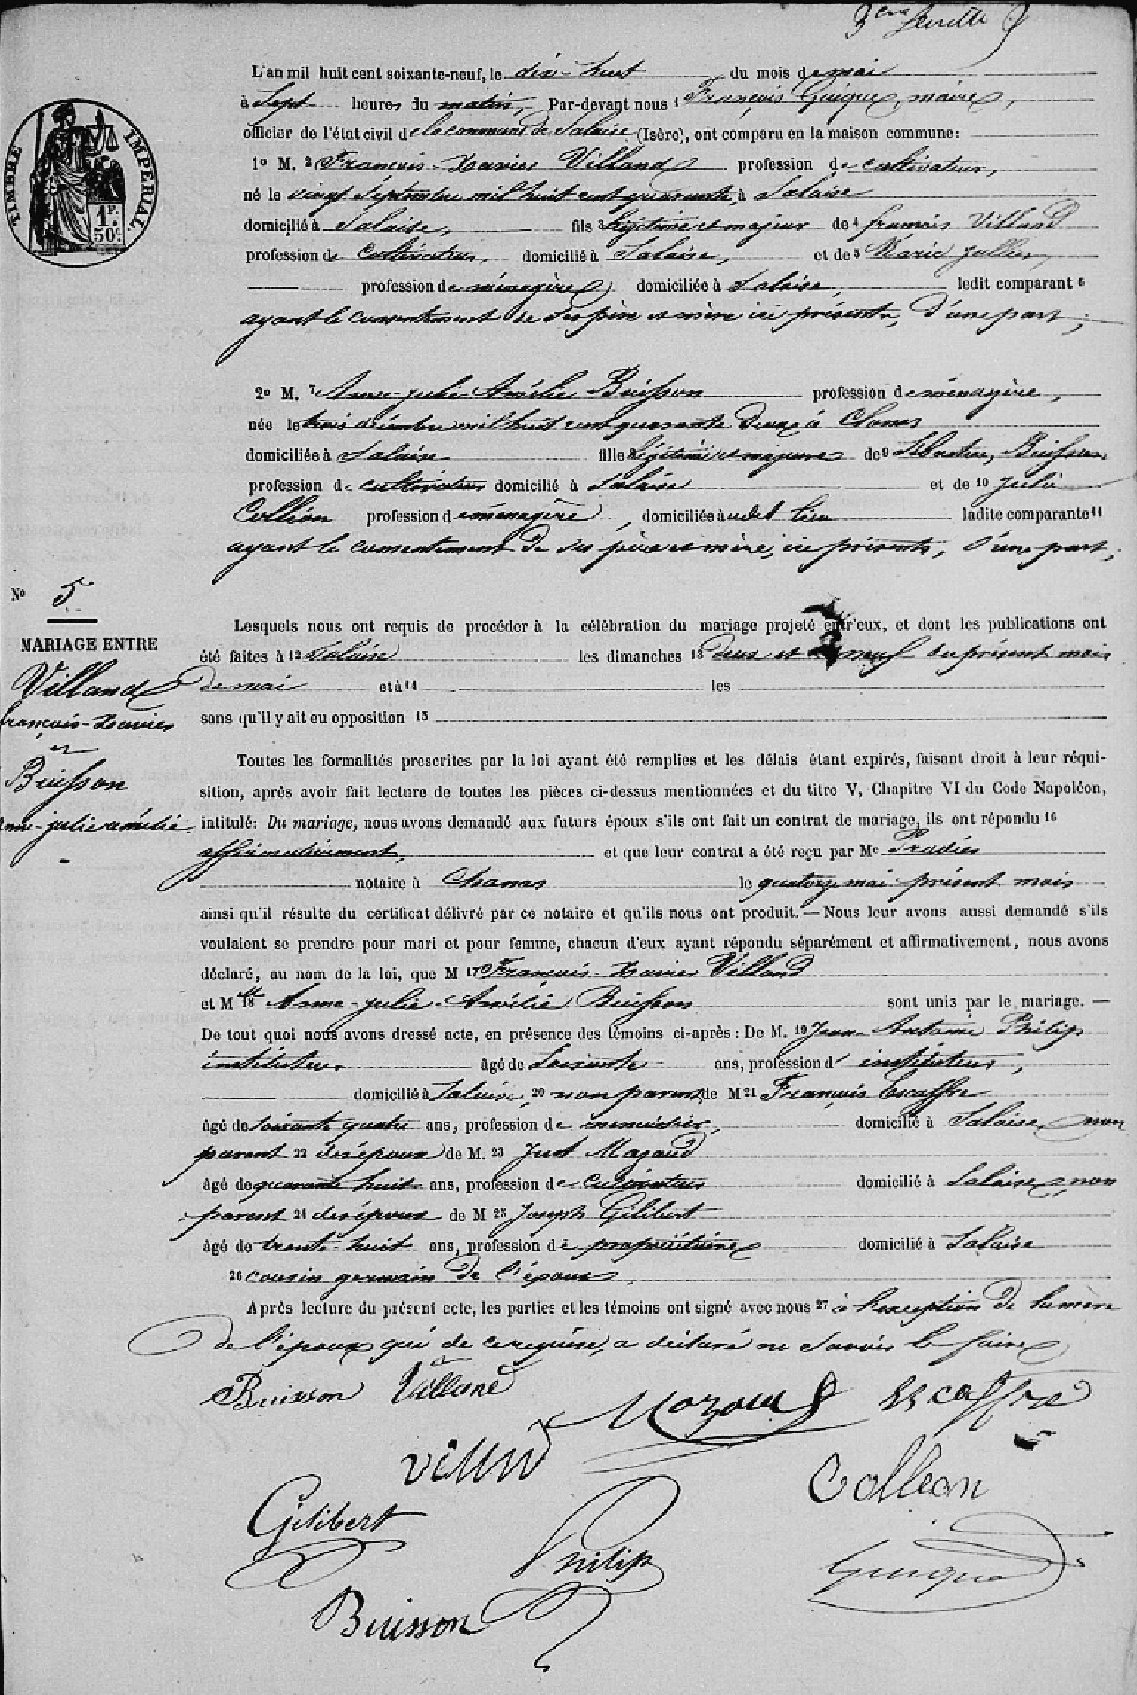 3eme feuille
L'an mil huit cent soixante-neuf, le dix-huit du mois de mai
à Sept heures du matin, Par-devant nous 1 François Guigue, maire,
officier de l'état civil de la commune de Salaise (Isère), ont comparu en la maison commune:
TIMBRE IMPERIAL
1F. 50c
1o M. 2 François-Xavier Villand profession de cultivateur,
né le vingt Septembre mil huit cent quarante, à Salaise
domicilié à Salaise, fils 3 légitime et majeur de 4 françois Villand
profession de Cultivateur, domicilié à Salaise, et de 5 Marie Jullien,
profession de ménagère, domiciliée à Salaise, ledit comparant 6
ayant le consentement de ses père et mère ici présents, d'une part;
2o M. 7 Anne-julie-Amélie Buisson profession de ménagère,
née le trois décembre mil huit cent quarante deux à Chanas
domiciliée à Salaise fille 8 légitime et majeure de 9 Buisson
profession de cultivateur domicilié à Salaise et de 10 Julie
Colléon profession de ménagère, domiciliée audit lieu ladite comparante 11
ayant le consentement de ses père et mère, ici présents, d'une part;
No 5
MARIAGE ENTRE
Villand
françois-Xavier
et
Buisson
anne-julie amélie
Lesquels nous ont requis de procéder à la célébration du mariage projeté entr'eux, et dont les publications ont
été faites à 12 Salaise les dimanches 13 deux et neuf du présent mois
de mai et à 14 les
sans qu'il y ait eu opposition 15
Toutes les formalités prescrites par la loi ayant été remplies et les délais étant expirés, faisant droit à leur réqui-
sition, après avoir fait lecture de toutes les pièces ci-dessus mentionnées et du titre V, Chapitre VI du Code Napoléon,
intitulé: Du mariage, nous avons demandé aux futurs époux s'ils ont fait un contrat de mariage, ils ont répondu 16
affirmativement, et que leur contrat a été reçu par Me Pradier
notaire à Chanas le quatorze mai présent mois
ainsi qu'il résulte du certificat délivré par ce notaire et qu'ils nous ont produit. — Nous leur avons aussi demandé s'ils
voulaient se prendre pour mari et pour femme, chacun d'eux ayant répondu séparément et affirmativement, nous avons
déclaré, au nom de la loi, que M 17 François-Xavier Villand
et Mlle 18 Anne-julie-Amélie Buisson sont unis par le mariage. —
De tout quoi nous avons dressé acte, en présence des témoins ci-après: De M. 19 Jean-Antoine Philip
instituteur âgé de Soixante ans, profession d'instituteur,
domicilié à Salaise, 20 non parent, de M 21 François Escoffre
âgé de soixante quatre ans, profession de domicilié à Salaise, non
parent 22 des époux de M. 23 Just Mozaud
âgé de quarante huit ans, profession de cultivateur domicilié à Salaise, non
parent 24 des époux de M 25 Joseph Gilibert
âgé de trente huit ans, profession de propriétaire domicilié à Salaise
26 cousin germain de l'épouse,
Après lecture du présent acte, les parties et les témoins ont signé avec nous 27 à l'exception de la mère
de l'époux qui de ce requise, a déclaré ne savoir le faire
Buisson Villand Mozaud Escoffre
Villand
Colléon
Gilibert Philip Guigue
Buisson